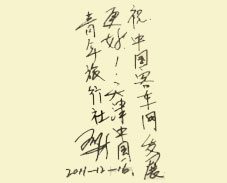 祝中国客车网发展
更好!:天津中国
青年旅行社
2011-12-16.